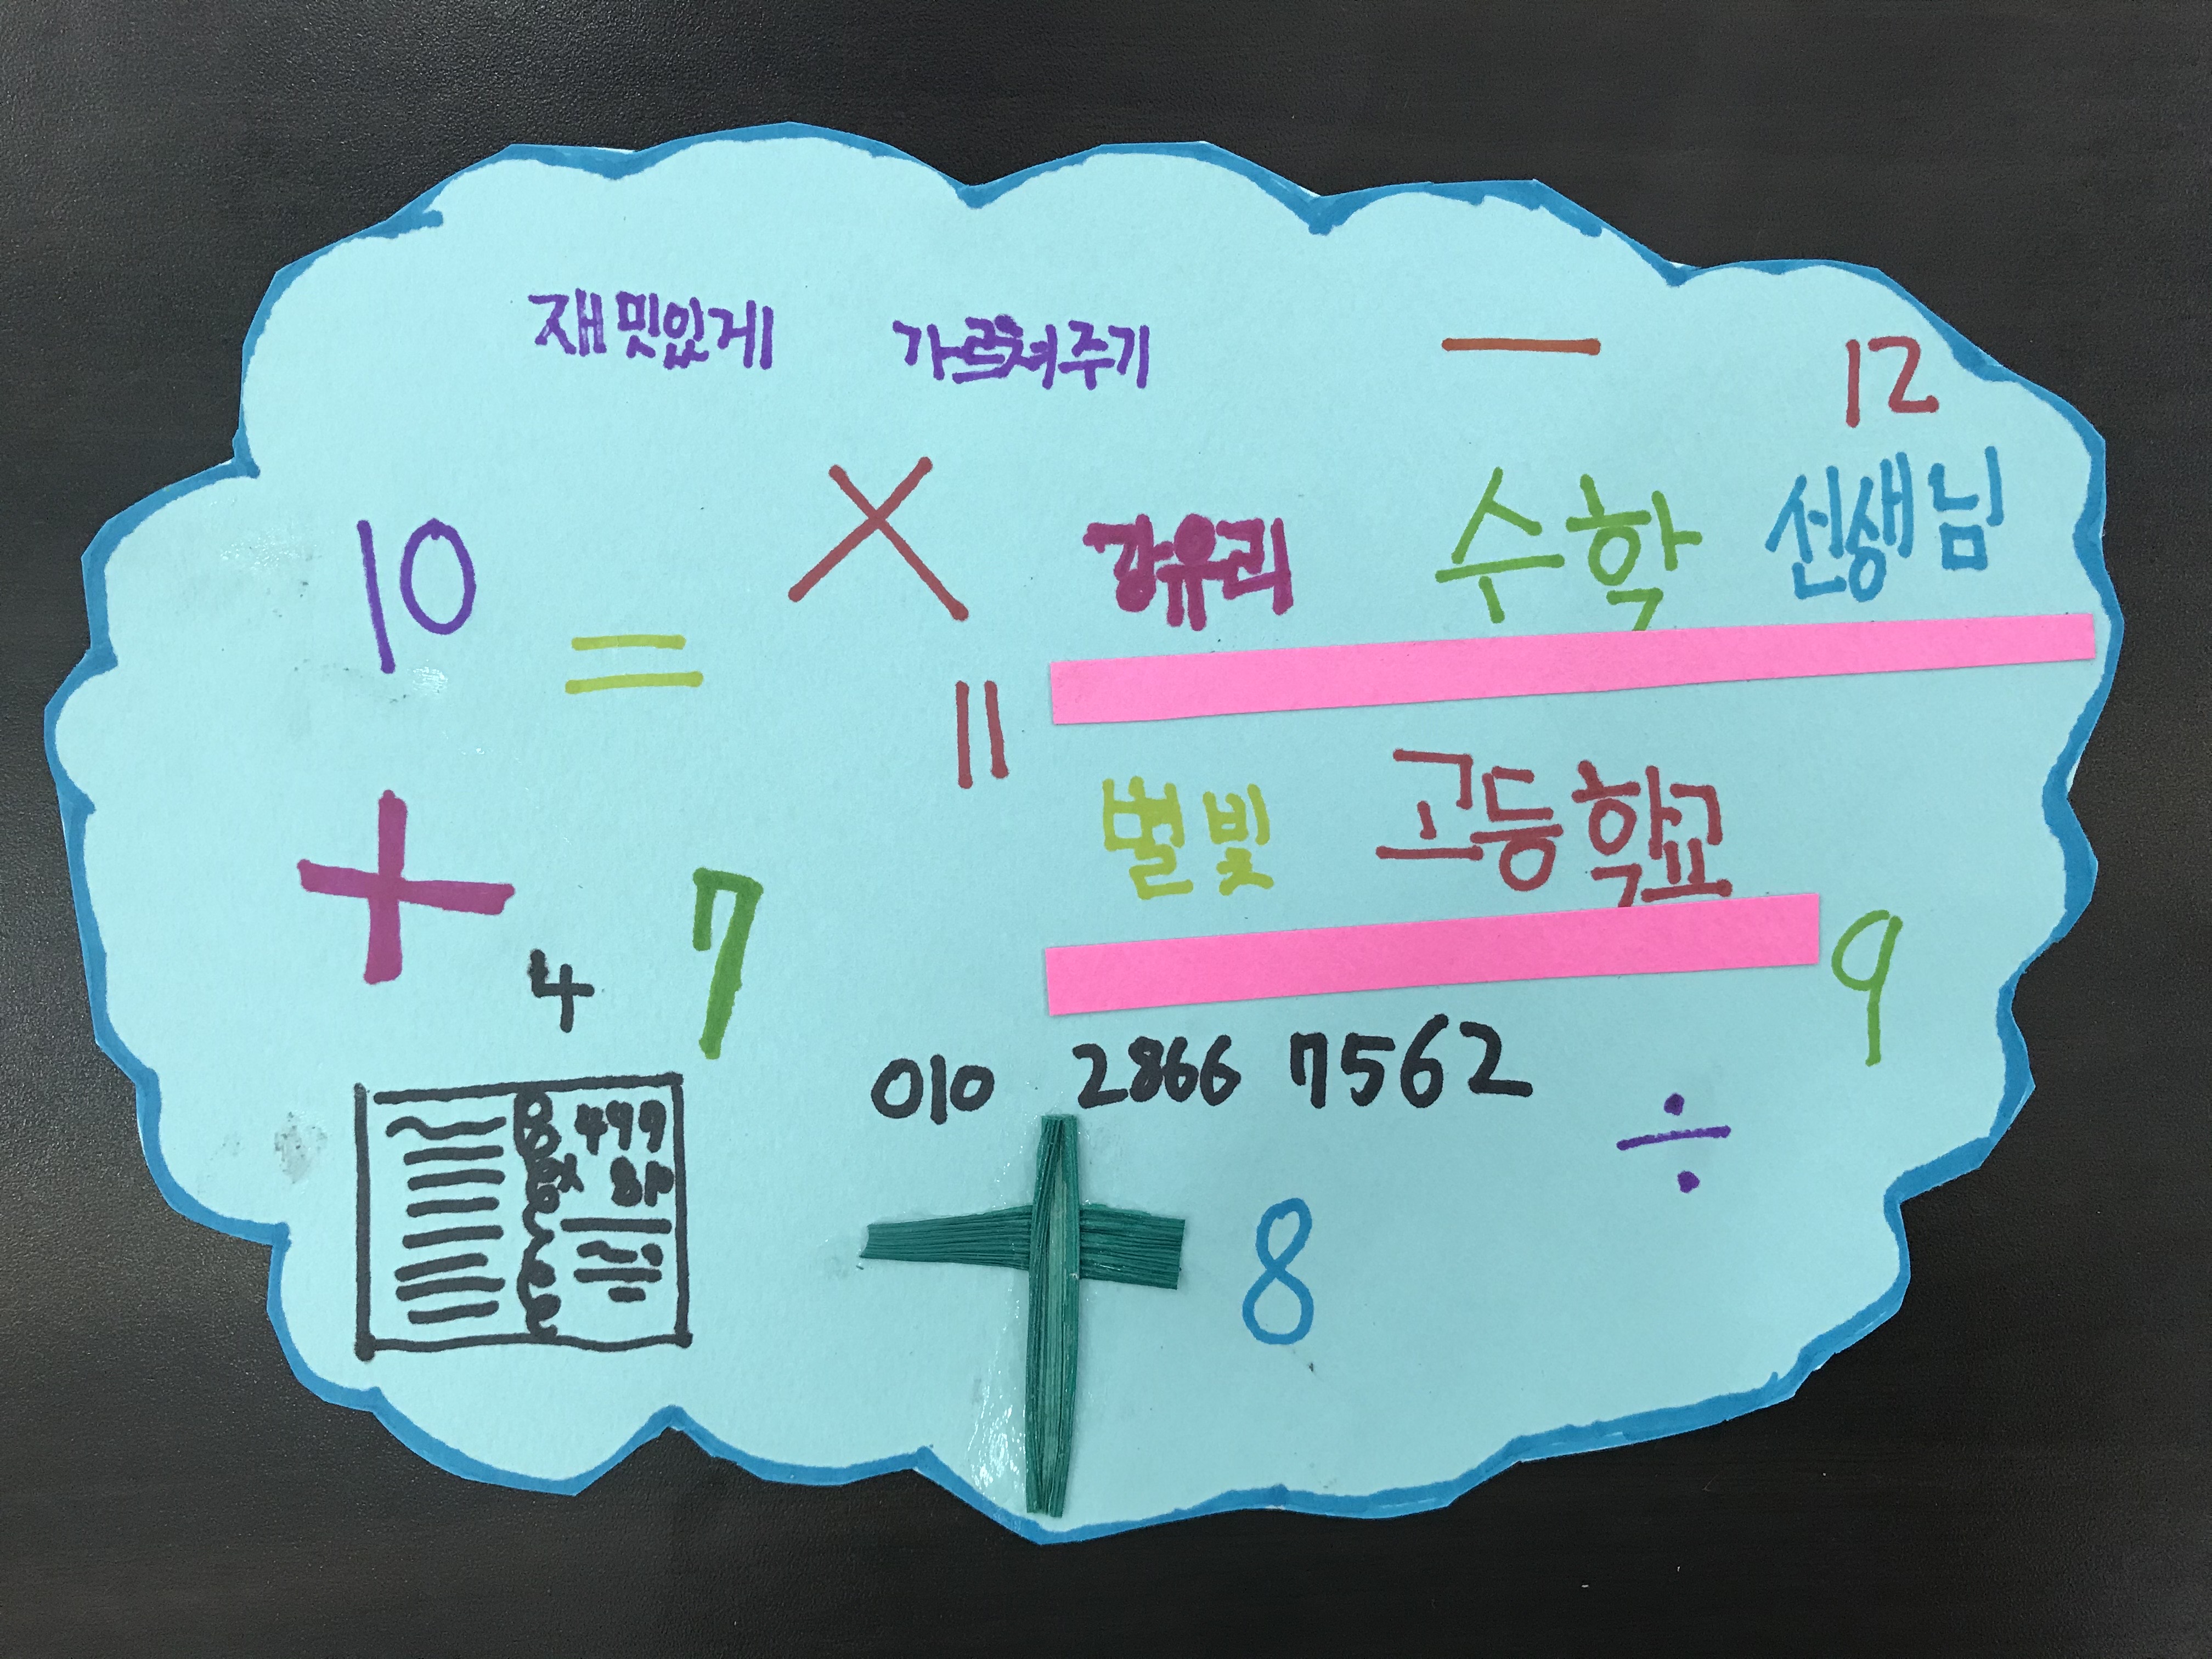 재밋있게 가르쳐주기
— 12
10 = × 강유리 수학 선생님
11
별빛 고등학교
+ 4 7 9
010 2866 7562
÷
+ 8
499